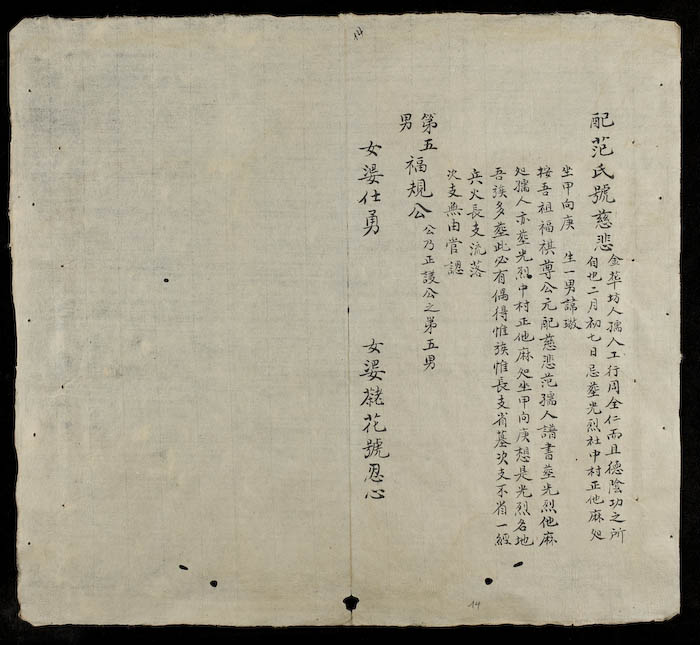 14
配范氏號慈悲
金華坊人孺人工行周全仁而且德陰功之所
自也二月初七日忌塟光烈社中村正他麻处
坐甲向庚 生一男諱璥
按吾祖福祺尊公元配慈悲范孺人譜書塟光烈他麻
处孺人亦塟光烈中村正他麻处坐甲向庚想是光烈名地
吾族多塟此必有偶得惟族惟長支省墓次支不省一經
兵火長支流落
次支無由嘗認
第五福規公 公乃正議公之第五男
男
女婆仕勇
女婆花號思心
14